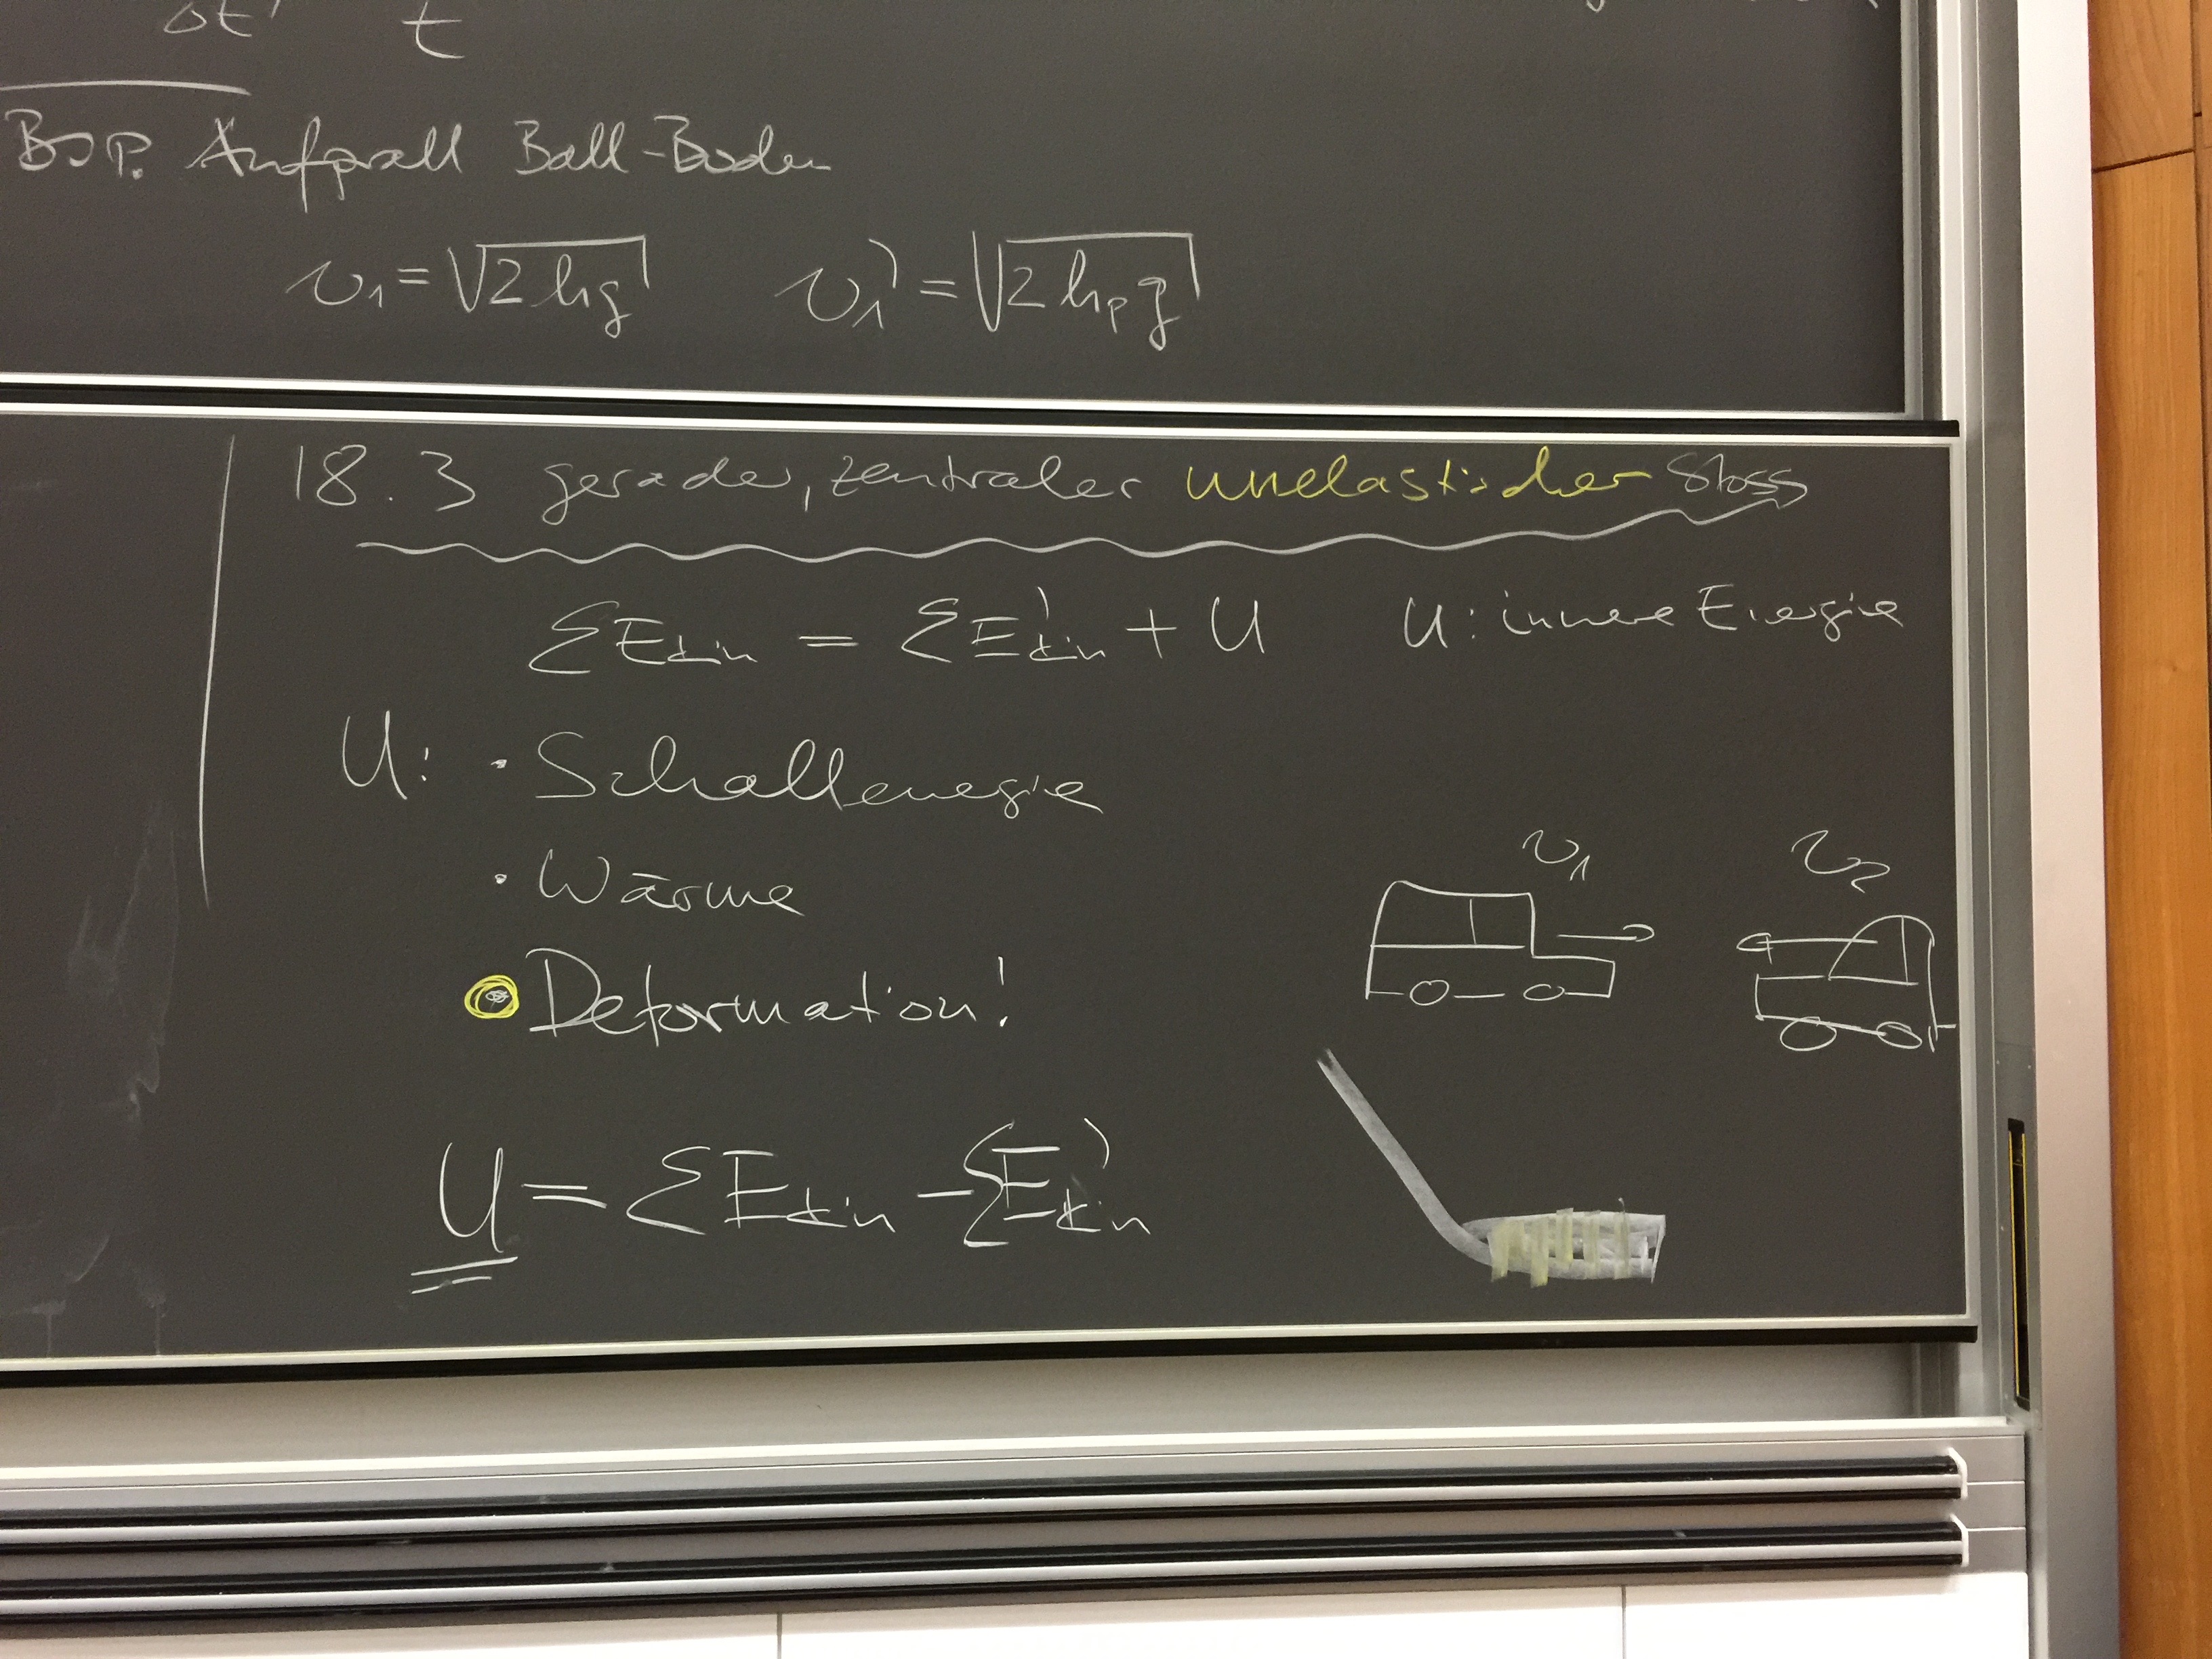 Δt t
BSP. Aufprall Ball-Boden
v₁ = √2hg v₁' = √2hₚg
18.3 gerader, zentraler unelastischer Stoss
ΣEkin = ΣE'kin + U U: innere Energie
U: · Schallenergie
· Wärme
v₁ v₂
Deformation!
U = ΣEkin - ΣE'kin